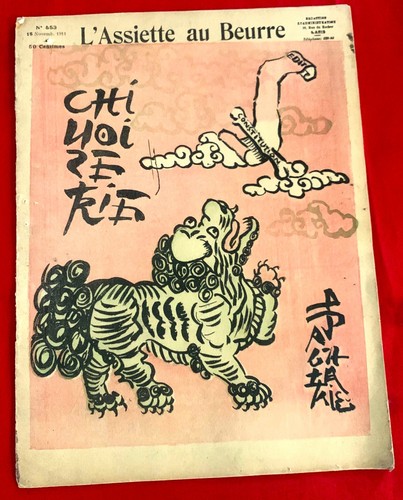 N° 553
18 Novembre 1911
50 Centimes
L'Assiette au Beurre
RÉDACTION
ADMINISTRATION
PARIS
CHI
NOI
SE
RIE
EDIT
CONSTITUTION